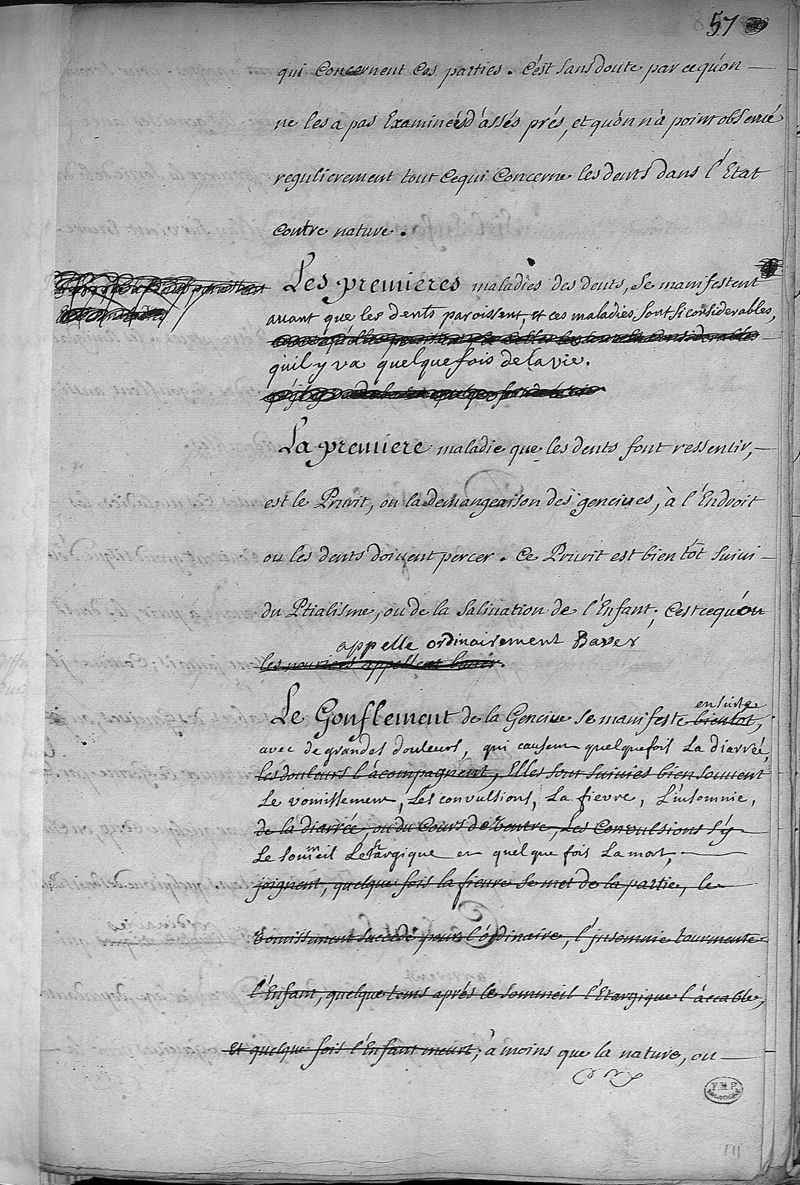 57
qui Concernent Ces parties. C'est sans doute parcequ'on
ne les a pas Examinées d'assés prés, et qu'on n'a point observé
regulierement tout Cequi Concerne les dents dans l'Etat
Contre nature.
Les premieres maladies des dents, se manifestent
auant que les dents paroissent, et ces maladies sont si considerables,
qu'il y va quelque fois de la vie.
La premiere maladie que les dents font ressentir,
est le Prurit, ou la demangeaison des genciues, à l'Endroit
ou les dents doiuent percer. Ce Prurit est bien tôt suiui
du Ptialisme, ou de la Saliuation de l'Enfant; C'est cequ'on
appelle ordinairement Baver
les nourices appellent baver.
ensuite
Le Gonflement de la Genciue se manifeste bientot,
avec de grandes douleurs, qui causent quelquefois La diarrée,
les douleurs l'acompagnent, Elles sont suiuies bien souuent
Le vomissement, Les convulsions, La fievre, L'insomnie,
de la diarrée, ou du Cours de Ventre, Les Convulsions s'y
Le sommeil Letargique et quelque fois La mort,
joignent, quelque fois la fieure se met de la partie, le
Vomissement succede pour l'ordinaire, l'jnsomnie tourmente
l'Enfant, quelque tems aprés le sommeil l'Etargique l'accable,
Et quelque fois l'Enfant meurt; à moins que la nature, ou